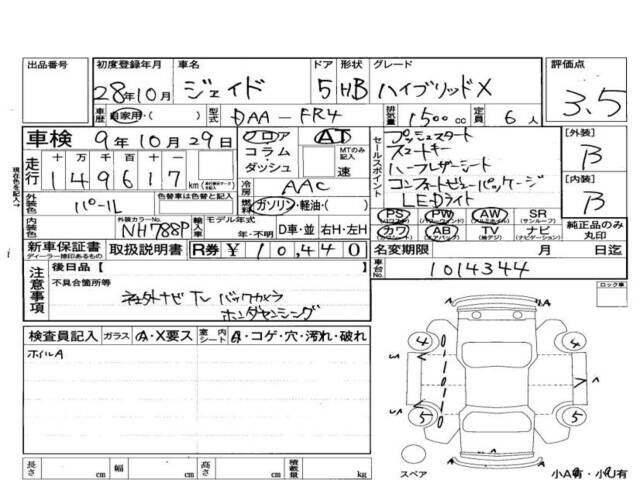 出品番号
初度登録年月 車名 ドア 形状 グレード 評価点
28年10月 ジェイド 5 HB ハイブリッドX 3.5
車歴 自家用・( ) 型式 DAA-FR4 排気量 1500cc 定員 6人
車検 9年10月29日 フロア AT
コラム MTのみ記入
ダッシュ 速
セールスポイント
プッシュスタート
スマートキー
ハーフレザーシート
コンフォートビューパッケージ
LEDライト
[外装] B
[内装] B
現在を記入→
走行 十万 万 千 百 十 一
149617 km
冷房 AAC
外装色 パール 燃料 ガソリン・軽油・( )
内装色 外装カラーNo. NH788P 輸入車 モデル年式 年・不明 D車・並 右H・左H
PS PW AW SR
(パワステ) (パワーウィンド) (アルミホイル) (サンルーフ)
カワ AB TV ナビ
(エアバック) (ナビゲーション)
純正品のみ丸印
新車保証書 取扱説明書 R券 ¥10,440
ディーラー捺印あるもの
名変期限 月 日迄
車台No. 1014344
注意事項 後日品【
不具合箇所等
社外ナビ TV バックカメラ
ホンダセンシング
ロック車
検査員記入 ガラス A・X要ス 室内シート コゲ・穴・汚れ・破れ
ホイルA
4 4
A
5 5
スペア
小A有・小U有
長さ cm 幅 cm 高さ cm 積載量 kg